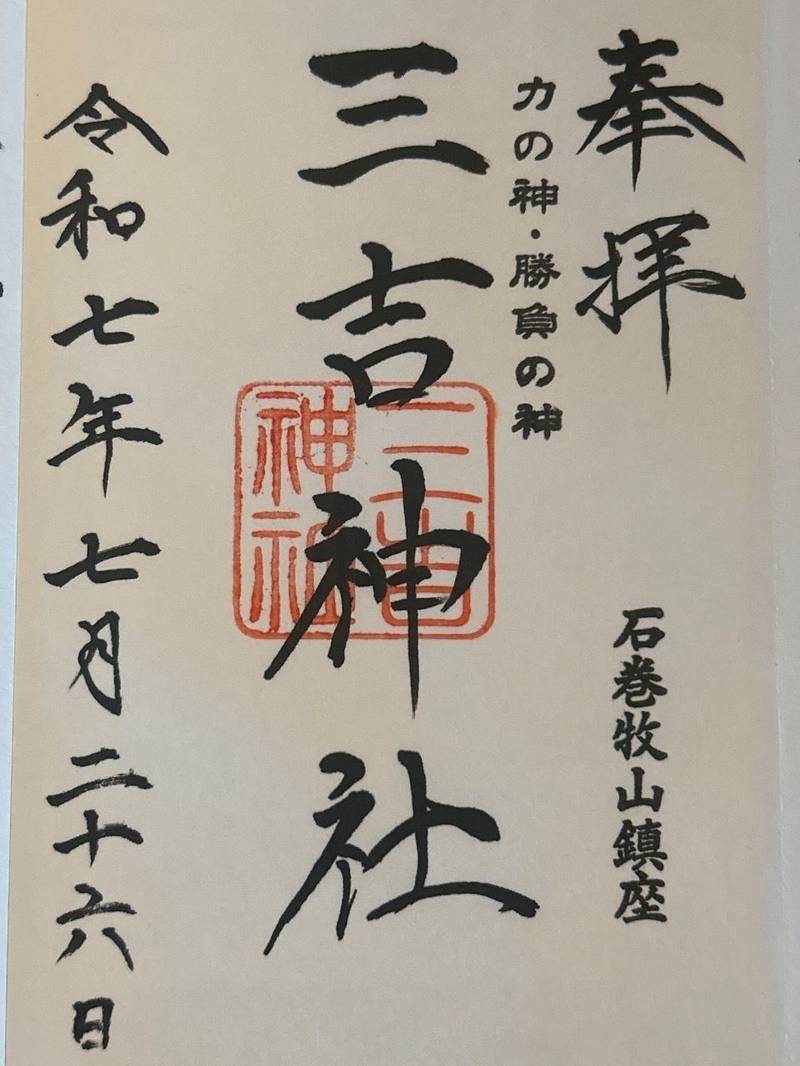 奉拝
石巻牧山鎮座
力の神・勝負の神
三吉神社
三吉神社
令和七年七月二十六日